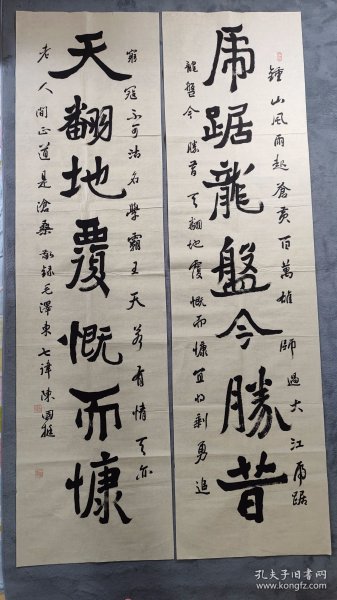 虎踞龍盤今勝昔
鍾山風雨起蒼黃百萬雄師過大江虎踞
龍盤今勝昔天翻地覆慨而慷宜將剩勇追
天翻地覆慨而慷
窮寇不可沽名學霸王天若有情天亦
老人間正道是滄桑 敬錄毛澤東七律 陳國挺
孔夫子旧书网
www.kongfz.com